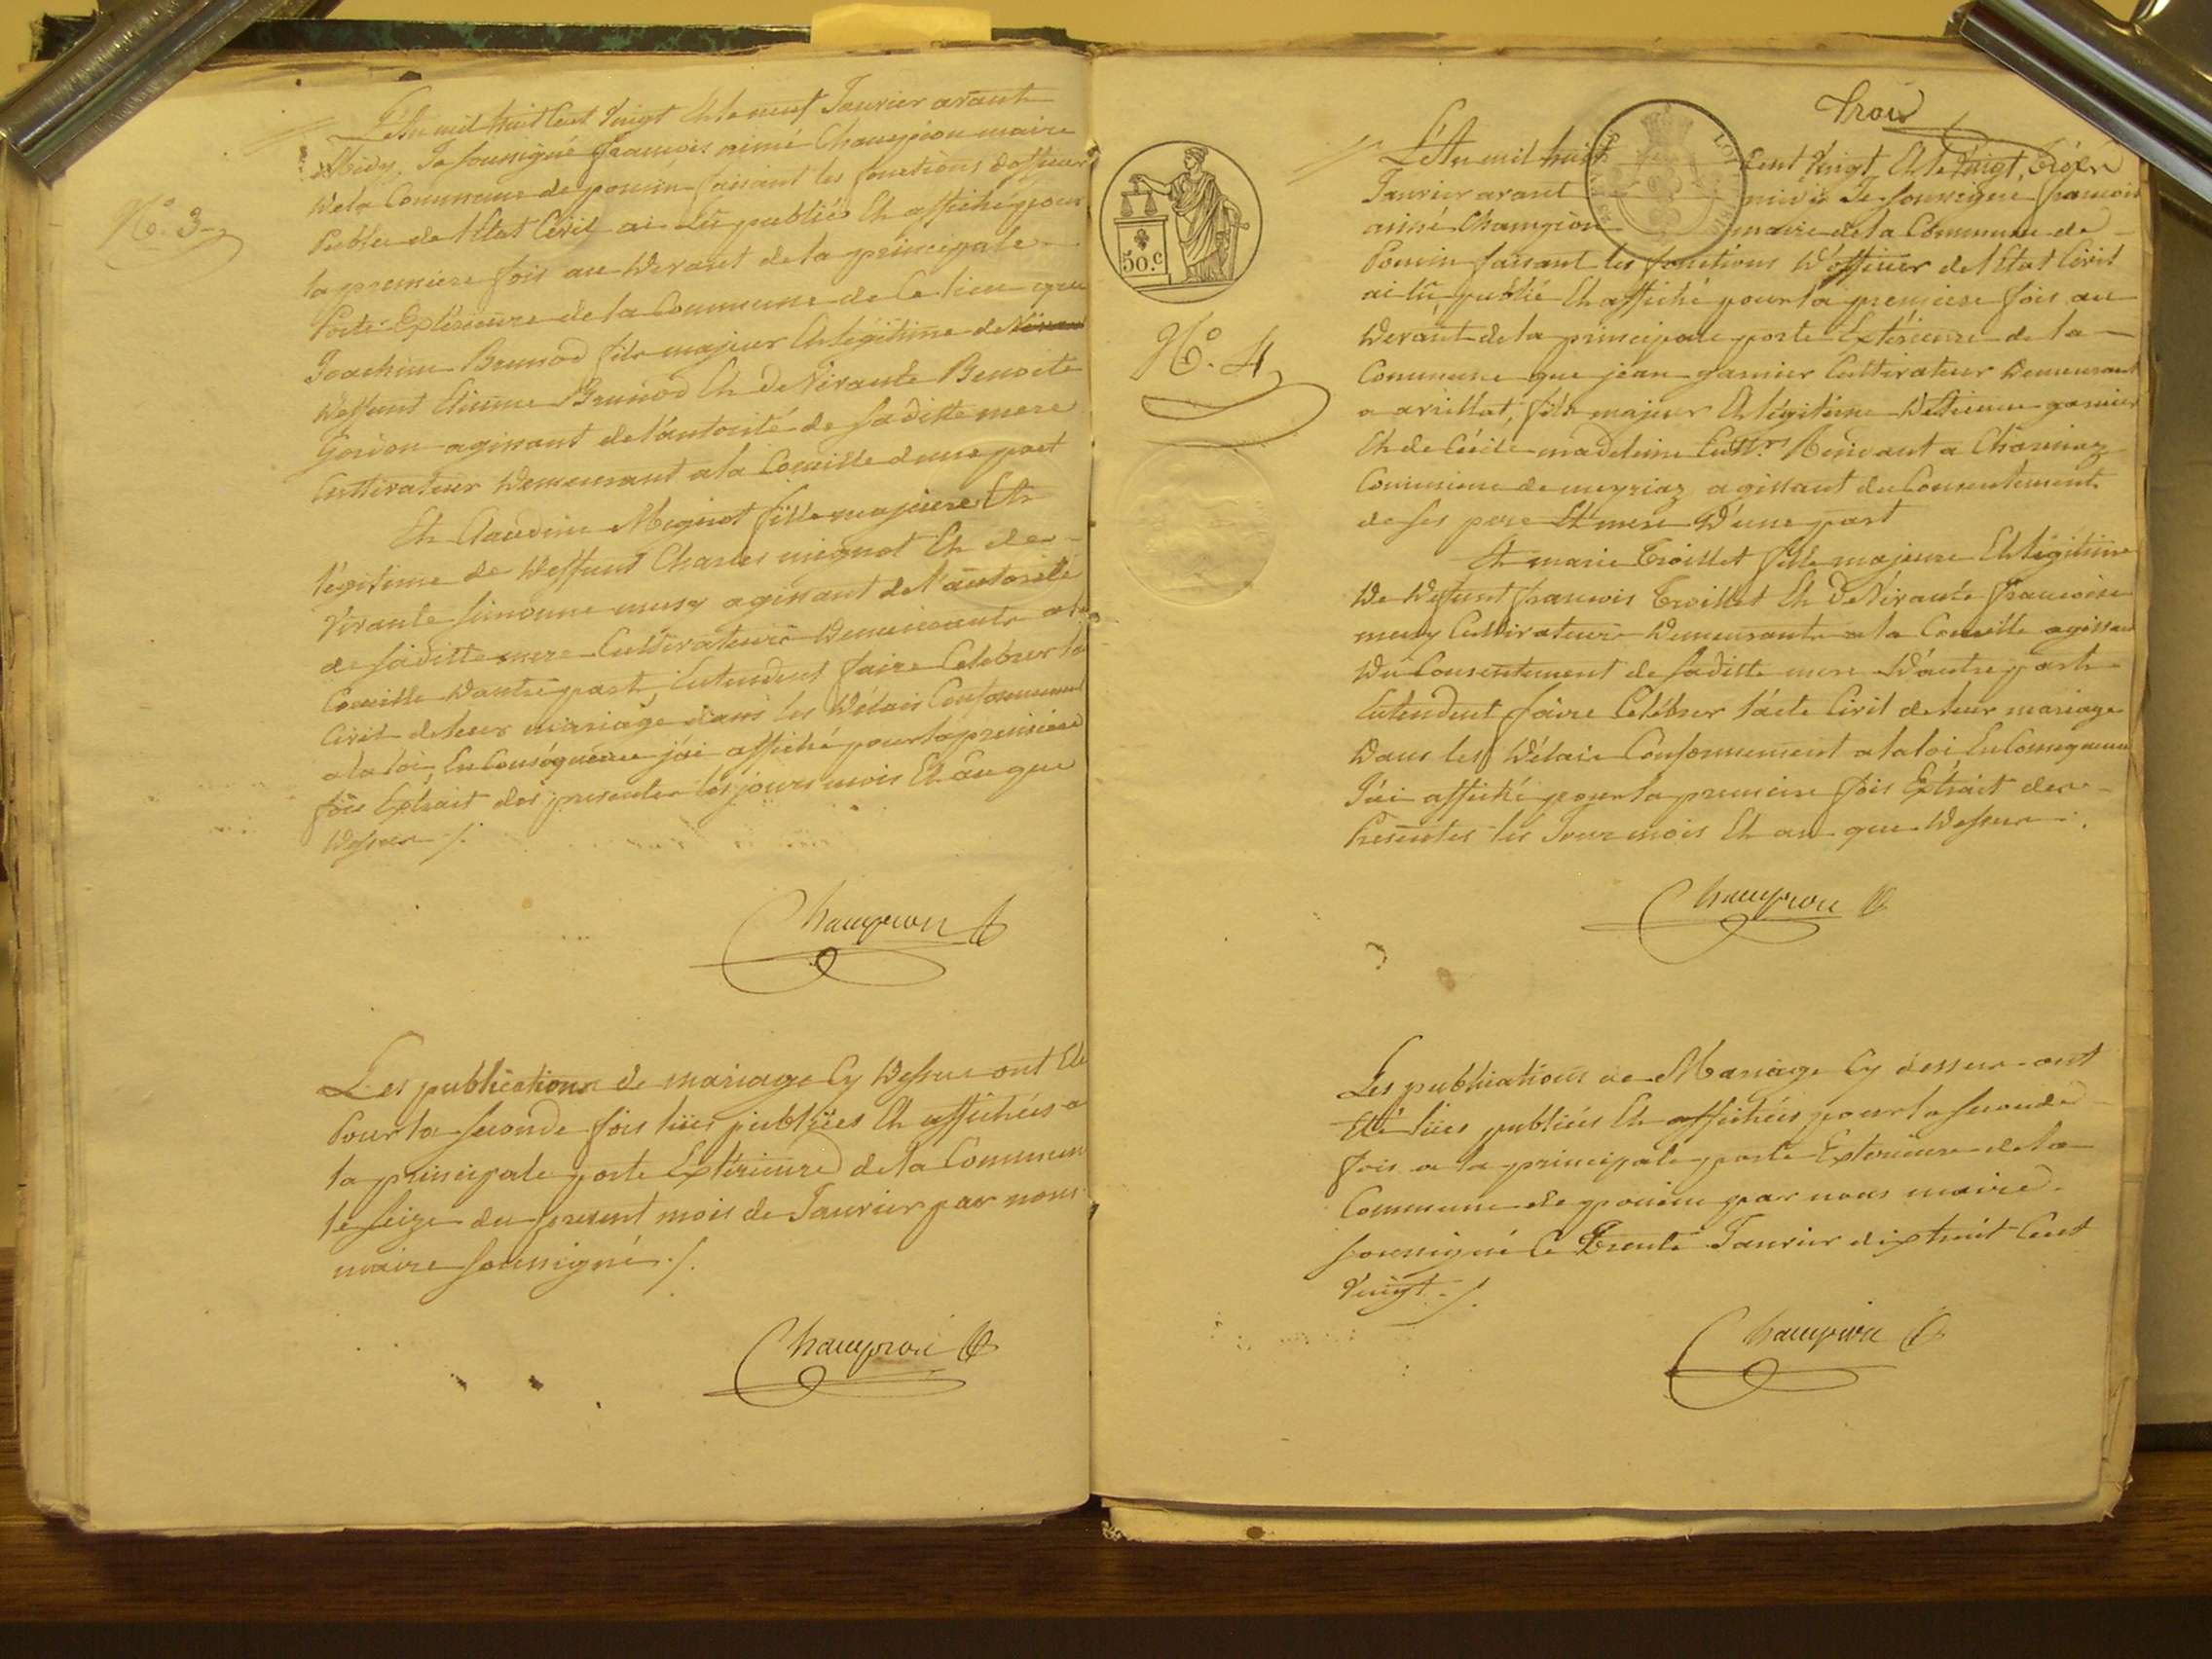 No. 3
L'An mil huit Cent Vingt Et le neuf Janvier avant
Midy, Je soussigné francois aimé Champion maire
de la Commune de poncin faisant les fonctions d'officier
Public de l'Etat Civil ai Lu publié Et affiché pour
la premiere fois au devant de la principale
Porte Exterieure de la Commune de Ce lieu que
Joachim Brunod fils majeur Et légitime de
deffunt Etienne Brunod Et de Vivante Benoite
Goivon agissant de l'autorité de saditte mere
Cultivateur demeurant a la Coueille d'une part
Et Claudine Mignot fille majeure Et
légitime de deffunt Charles mignot Et de
Vivante Simonne musy agissant de l'autorité
de saditte mere Cultivateurs demeurants a la
Coueille d'autre part, Entendent faire Celebrer l'acte
Civil de leur mariage dans les délais Conformement
a la loi, En Conséquence j'ai affiché pour la premiere
fois Extrait des presentes les jours mois Et an que
dessus ./.
Champion
Les publications de mariage Cy dessus ont Eté
Pour la seconde fois lües publiées Et affichées a
la principale porte Extérieure de la Commune
le seize du present mois de Janvier par nous
maire soussigné ./.
Champion
trois
50.c
No. 4
L'An mil huit Cent Vingt Et le Vingt trois
Janvier avant midi Je soussigné francois
aimé Champion maire de la Commune de
Poncin faisant les fonctions d'officier de l'Etat Civil
ai lû, publié Et affiché pour la premiere fois au
devant de la principale porte Exterieure de la
Commune que jean garnier Cultivateur demeurant
a avrillat, fils majeur Et légitime d'Etienne garnier
Et de Cécile madeleine Cultr. Residant a Charinaz
Commune de meyriaz agissant du Consentement
de ses pere Et mere d'une part
Et marie Troillet fille majeure Et légitime
de deffunt francois Troillet Et de Vivante francoise
musy Cultivateurs demeurants a la Coueille agissant
du Consentement de saditte mere d'autre part
Entendent faire Celébrer l'acte Civil de leur mariage
dans les délais Conformement a la loi, En Consequence
J'ai affiché pour la premiere fois Extrait des
Presentes les Jour mois Et an que dessus ./.
Champion
Les publications de Mariage Cy dessus ont
Eté lües publiées Et affichées pour la seconde
fois a la principale porte Exterieure de la
Commune de poncin par nous maire
soussigné le Trente Janvier dix huit Cent
Vingt ./.
Champion